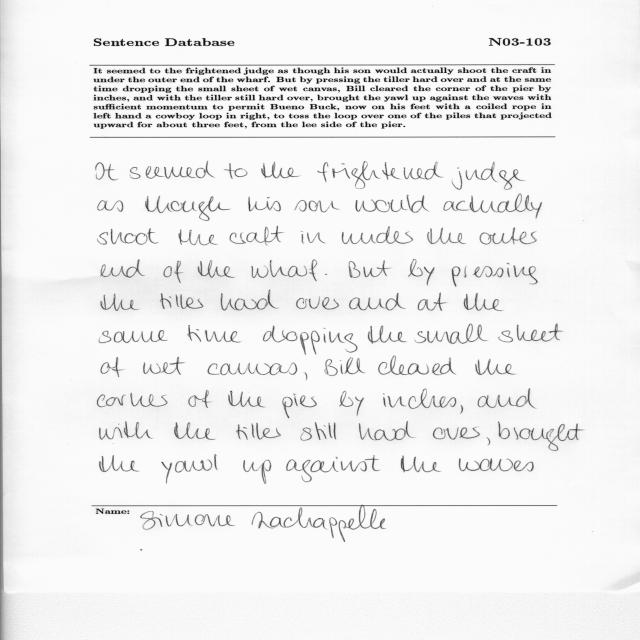 Sentence Database N03-103
It seemed to the frightened judge as though his son would actually shoot the craft in
under the outer end of the wharf. But by pressing the tiller hard over and at the same
time dropping the small sheet of wet canvas, Bill cleared the corner of the pier by
inches, and with the tiller still hard over, brought the yawl up against the waves with
sufficient momentum to permit Bueno Buck, now on his feet with a coiled rope in
left hand a cowboy loop in right, to toss the loop over one of the piles that projected
upward for about three feet, from the lee side of the pier.
It seemed to the frightened judge
as though his son would actually
shoot the craft in under the outer
end of the wharf. But by pressing
the tiller hard over and at the
same time dropping the small sheet
of wet canvas, Bill cleared the
corner of the pier by inches, and
with the tiller still hard over, brought
the yawl up against the waves
Name: Simone Lachappelle